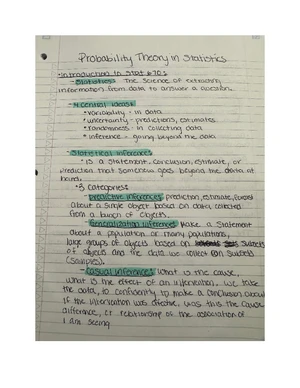 Probability Theory in Statistics
•Introduction to Stat 6701
-Statistics: The science of extracting
information from data to answer a question.
-4 Central ideas:
•variability - in data
•uncertainty - predictions, estimates
•randomness - in collecting data
•inference - going beyond the data
-Statistical inference:
•is a statement, conclusion, estimate, or
prediction that somehow goes beyond the data at
hand.
•3 categories:
-Predictive inferences: prediction, estimate, forecast
about a single object based on data collected
from a bunch of objects.
-Generalization inferences: Make a statement
about a population, or many populations,
large groups of objects based on subsets
of objects and the data we collect on subsets
(samples).
-Casual inference: what is the cause,
what is the effect of an intervention. we take
the data, to confidently to make a conclusion about
if the intervention was effective, was this the cause
difference, or relationship of the association of
I am seeing